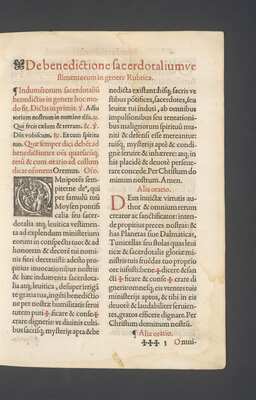 De benedictione sacerdotalium ve
stimentorum in genere Rubrica.
Indumentorum sacerdotaliū
benedictio in genere hoc mo
do fit. Dicitis in primis. ℣. Adiu
torium nostrum in nomine dn̄i.
℟. Qui fecit cælum & terram. &c. ℣.
Dn̄s vobiscum. ℟. Et cum spiritu
tuo. Quæ semper dici debēt ad
benedictiones
rēs, & cum oratio ad collum
dicat orationem Oremus. Oro.
Mnipotēs sem
piterne deꝰ, qui
per famulū tuū
Moysen pontifi
calia seu sacer
dotalia atq; leuitica vestimenta,
ad explendum ministerium
eorum in conspectu tuo & ad
decorem tui nominis
fieri decreuisti: adesto pro
pitius inuocationibus nostris
& hæc indumenta sacerdota
lia atq; leuitica, desuper irriga
te gratia tua, ingēti benedictio
ne per nostræ humilitatis serui
tutem puri✠ficare & conse✠
crare digneris: vt diuinis culti
bus sacrisq; mysterijs apta & be
nedicta existant: hisq; sacris ve
stibus pōtifices, sacerdotes, seu
leuitæ tui induti, ab omnibus
impulsionibus seu tentationi
bus malignorum spirituū mu
niti & defensi esse mereantur:
tuisq; mysterijs apte & condi
gne seruire & inhærere: atq; in
his placide & deuote perseue
rare concede. Per Christum do
minum nostrum. Amen.
Alia oratio.
DEus inuictæ virtutis auth
or & omnium rerum
creator ac sanctificator: inten-
de propitius preces nostras: & has
has Planetas siue Dalmaticas,
Tunicellas seu stolas quas leui
ticæ & sacerdotalis gloriæ mi
nistris tuis fruēdas tuo proprio
ore iussisti bene✠dicere & san
cti✠ficare & conse✠crare di
gneris: vt omnes eis vtentes tuis
ministerijs aptos, & tibi in eis
deuote & laudabiliter seruien-
tes, gratos efficere dignare. Per
Christum dominum nostrū.
¶ Alia oratio.
✠✠✠ 1 Omni-